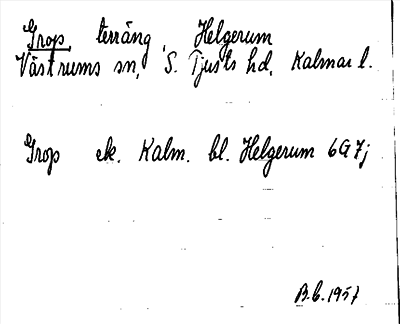 Grop, terräng, Helgerum
Västrums sn, S. Tjusts hd, Kalmar l.
Grop ek. Kalm. bl. Helgerum 6G7j
B.b. 1957